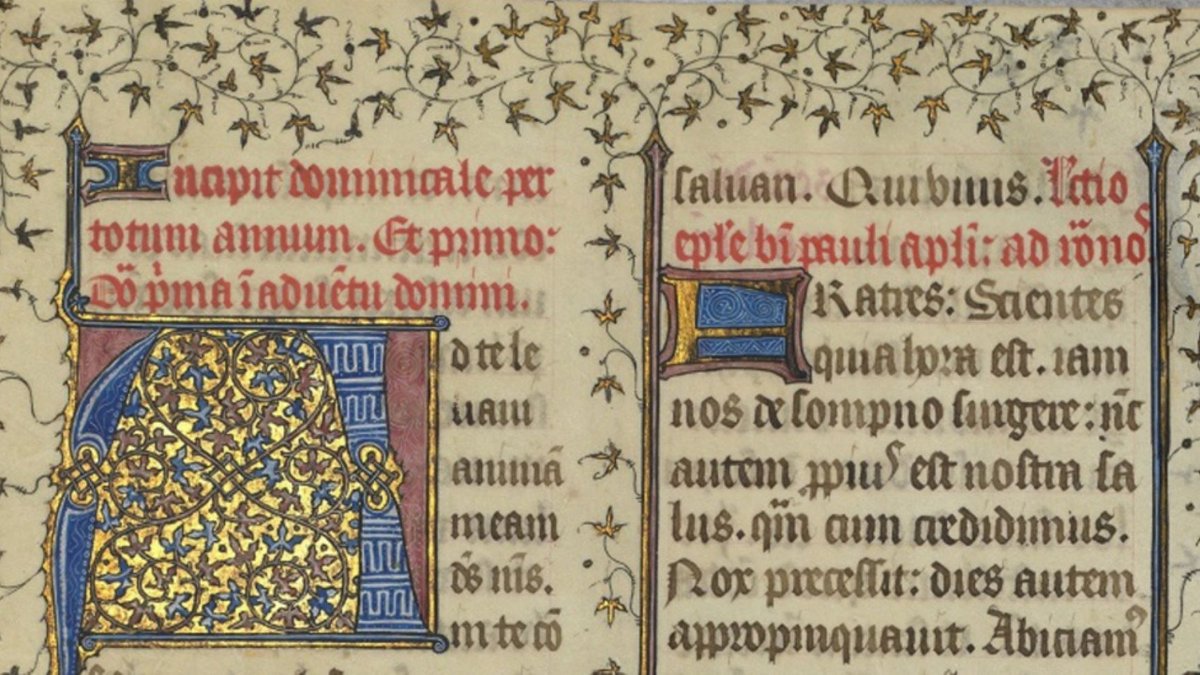 Incipit dominicale per
totum annum. Et primo:
Dō p̄ma ī aduētu domini.
Ad te le
uaui
animā
meam
ds̄ ms̄.
in te cō
saluari. Qui viuis. Lctio
eple bī pauli apli: ad rōnos
FRatres: Scientes
quia hora est. iam
nos de sompno surgere: nc̄
autem ꝓpius est nostra sa
lus. qm̄ cum credidimus.
Nox precessit: dies autem
appropinquauit. Abiciamꝰ